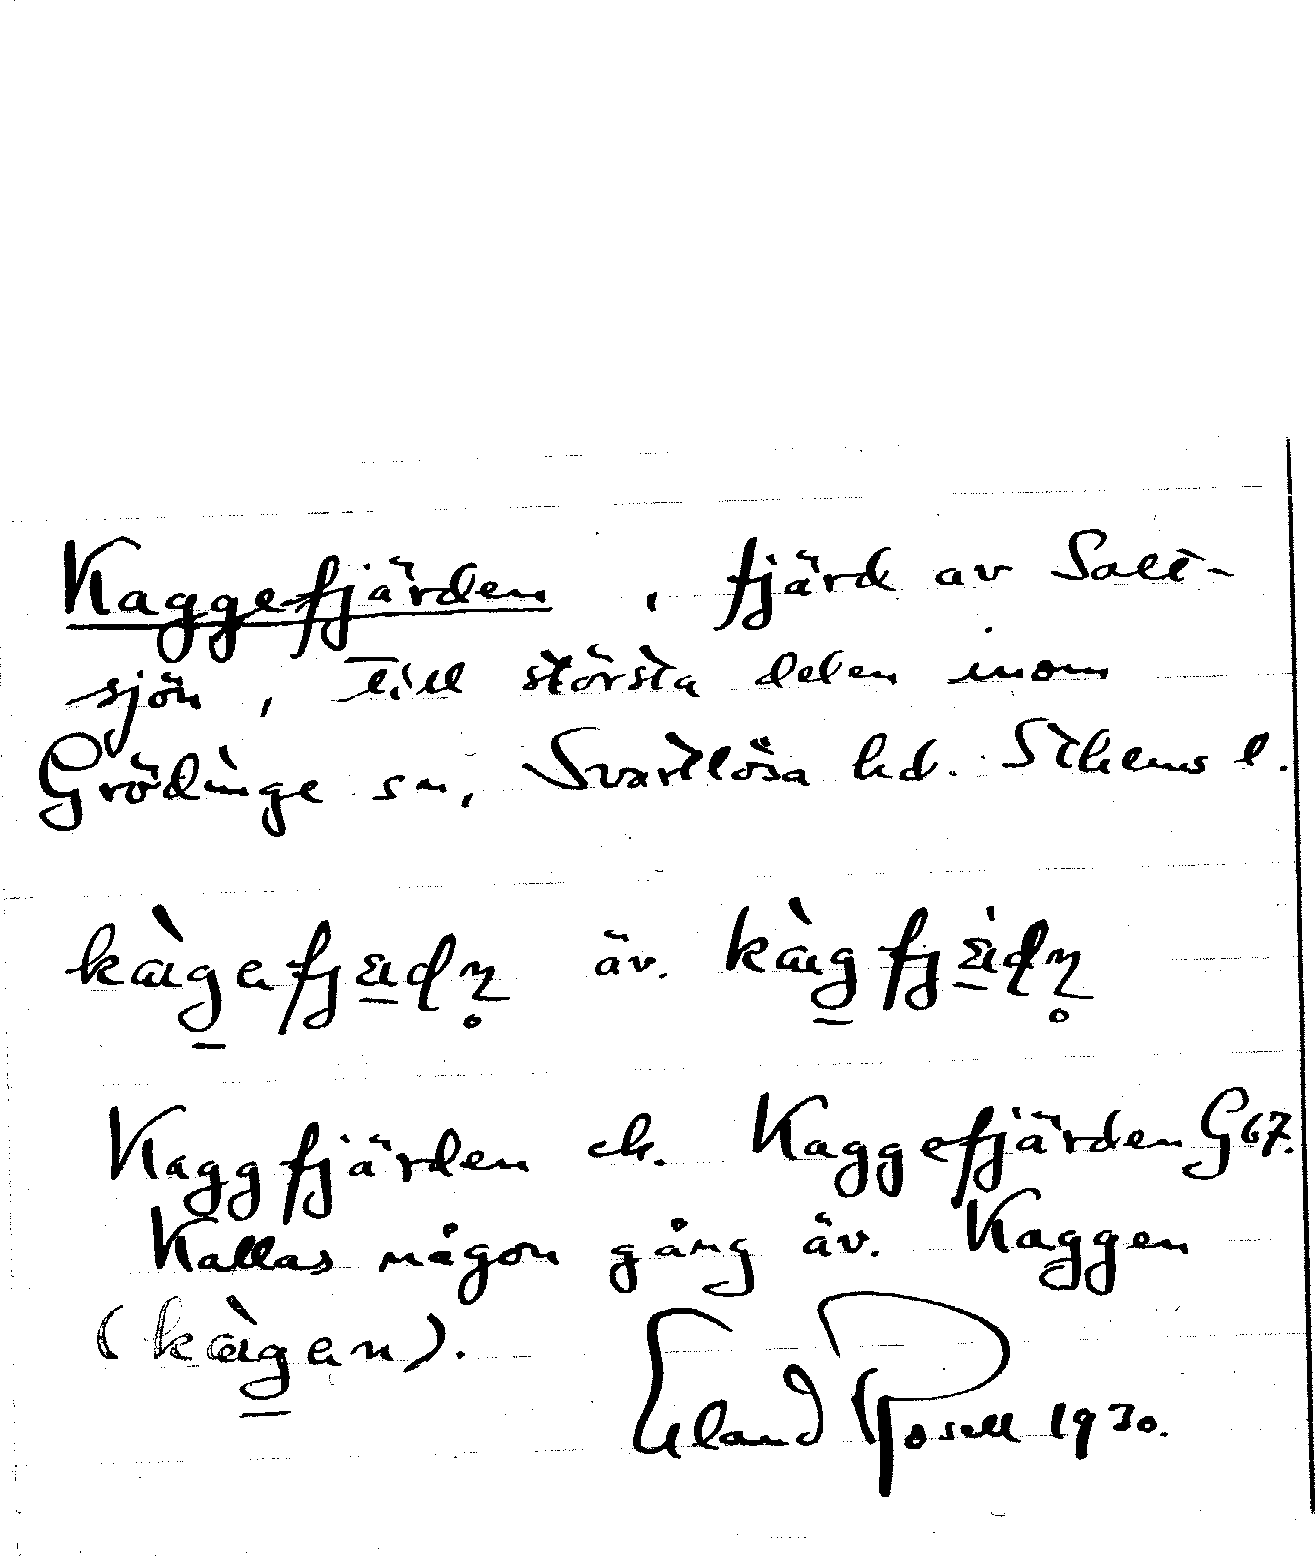 Kaggefjärden, fjärd av Salt-
sjön, till största delen inom
Grödinge sn, Svartlösa hd. Sthems l.
kàgefjädn äv. kàgfjädn
Kaggfjärden ek. Kaggefjärden G67.
Kallas någon gång äv. Kaggen
(kàgen).
Erland Rosell 1930.